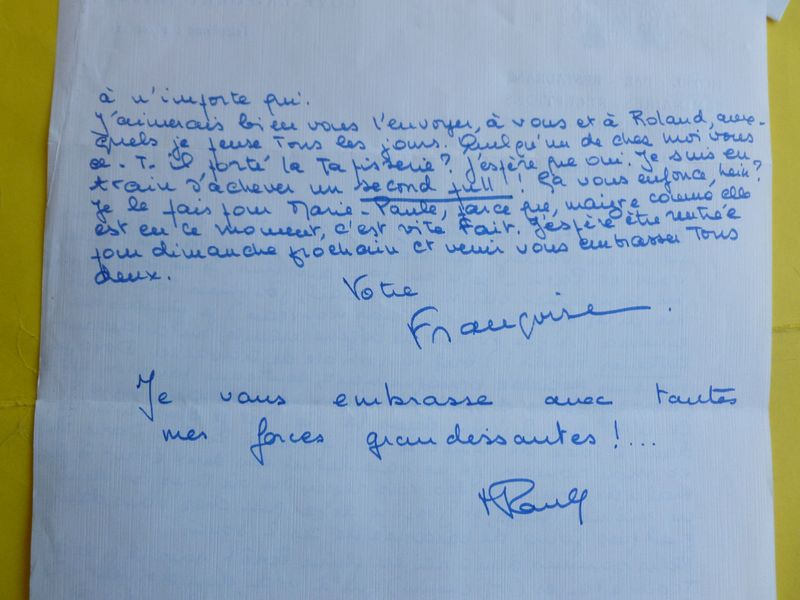 à n'importe qui.
J'aimerais bien vous l'envoyer, à vous et à Roland, aux-
quels je pense Tous les jours. Quelqu'un de chez moi vous
a-T-il porté la Tapisserie? J'espère que oui. Je suis en
train d'achever un second pull! Ça vous enfonce, hein?
Je le fais pour Marie-Paule, parce que, maigre comme elle
est en ce moment, c'est vite Fait. J'espère être rentrée
pour dimanche prochain et venir vous embrasser Tous
deux.
Votre
Françoise.
Je vous embrasse avec toutes
mes forces grandissantes!...
MPaule